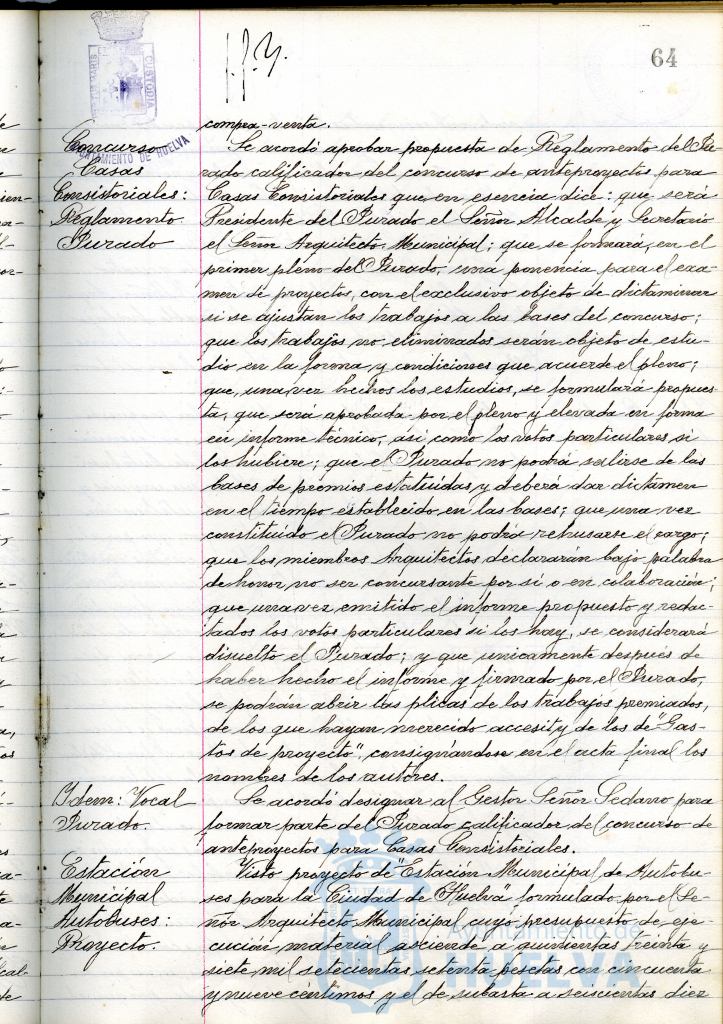 64
compra-venta.
Concurso
Casas
Consistoriales:
Reglamento
Jurado
AYUNTAMIENTO DE HUELVA
CUSTODIA
Se acordó aprobar propuesta de Reglamento del Ju-
rado calificador del concurso de anteproyectos para
Casas Consistoriales que en esencia dice: que será
Presidente del Jurado el Señor Alcalde y Secretario
el Señor Arquitecto Municipal; que se formará, en el
primer pleno del Jurado, una ponencia para el exa-
men de proyectos, con el exclusivo objeto de dictaminar
si se ajustan los trabajos a las bases del concurso;
que los trabajos no eliminados serán objeto de estu-
dio en la forma y condiciones que acuerde el pleno;
que, una vez hechos los estudios, se formulará propues-
ta, que será aprobada por el pleno y elevada en forma
en informe técnico, así como los votos particulares si
los hubiere; que el Jurado no podrá salirse de las
bases de premios estatuídas y deberá dar dictamen
en el tiempo establecido en las bases; que una vez
constituído el Jurado no podrá rehusarse el cargo;
que los miembros Arquitectos declararán bajo palabra
de honor no ser concursante por sí o en colaboración;
que una vez emitido el informe propuesto y redac-
tados los votos particulares si los hay, se considerará
disuelto el Jurado; y que unicamente después de
haber hecho el informe y firmado por el Jurado,
se podrán abrir las plicas de los trabajos premiados,
de los que hayan merecido accesit y de los de "Gas-
tos de proyecto", consignándose en el acta final los
nombres de los autores.
Idem: Vocal
Jurado.
Se acordó designar al Gestor Señor Sedano para
formar parte del Jurado calificador del concurso de
anteproyectos para Casas Consistoriales.
Estación
Municipal
Autobuses:
Proyecto.
Visto proyecto de "Estación Municipal de Autobu-
ses para la Ciudad de Huelva" formulado por el Se-
ñor Arquitecto Municipal cuyo presupuesto de eje-
cución material asciende a quinientas treinta y
siete mil setecientas setenta pesetas con cincuenta
y nueve céntimos y el de subasta a seiscientas diez
Ayuntamiento de
HUELVA